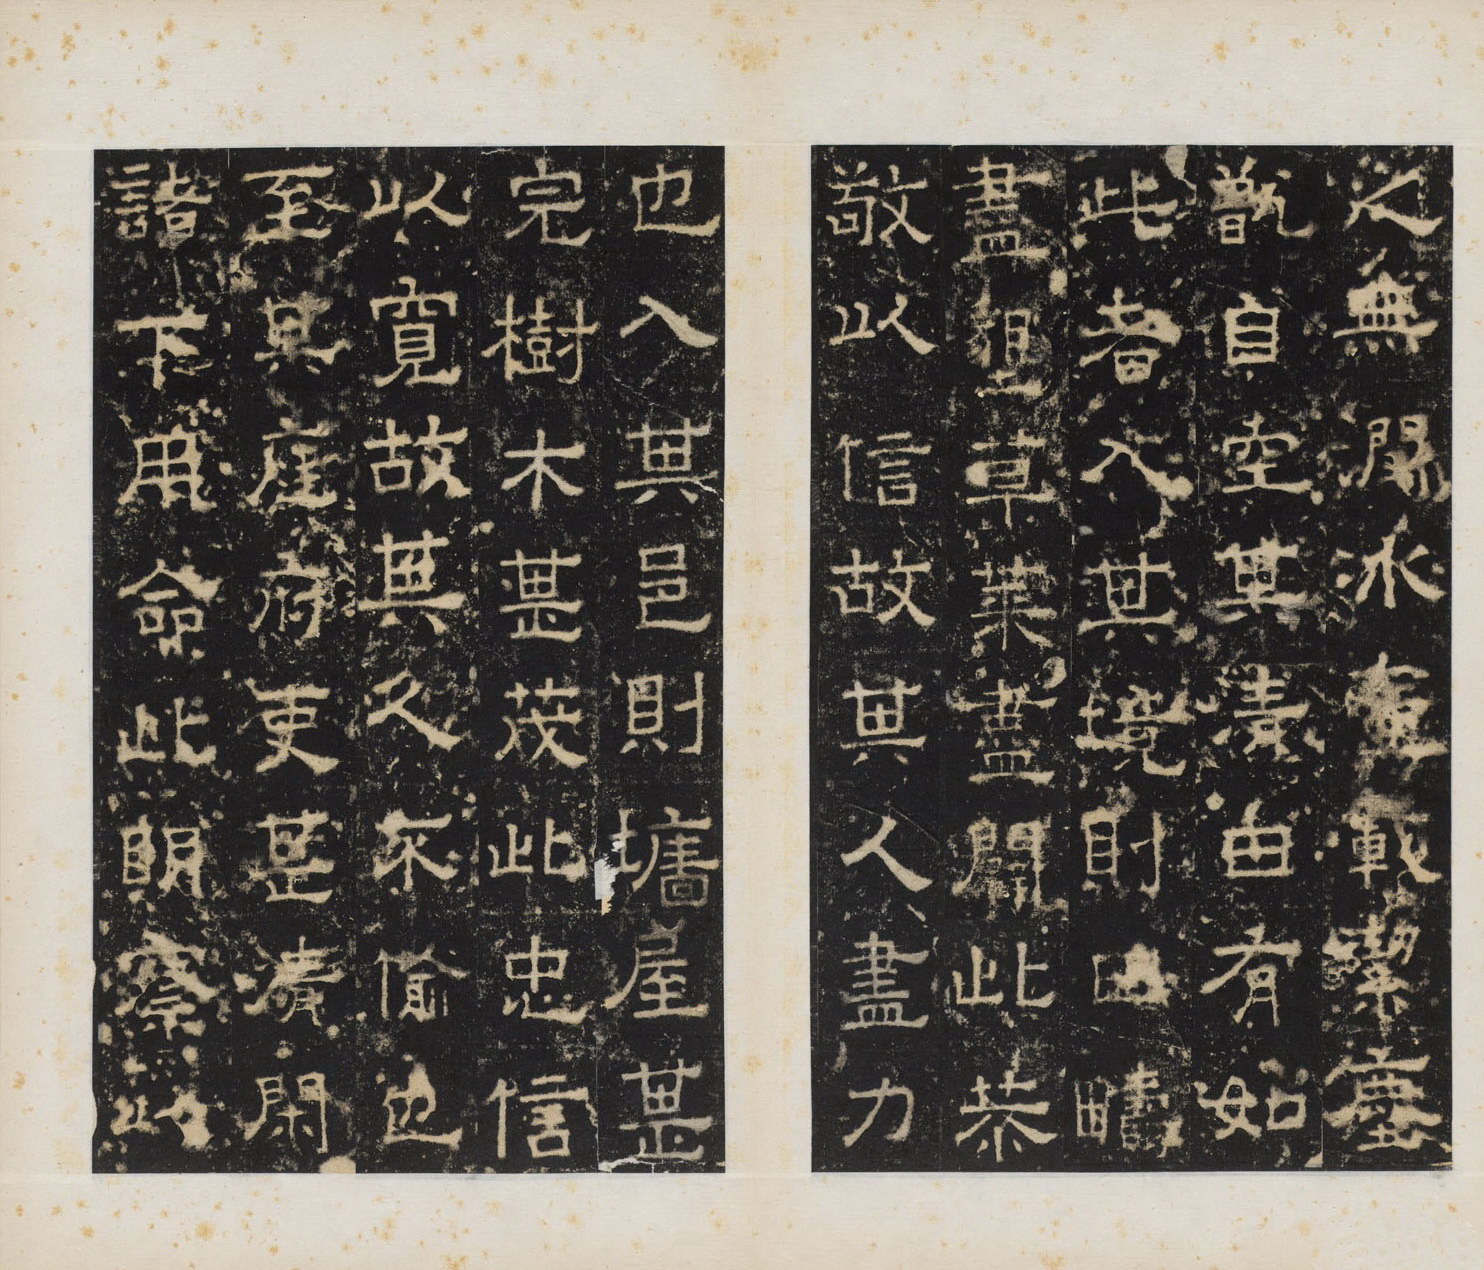 人無冰壺載絜塵
甑自空其清由有如
此者入其境則田疇
盡墾草萊盡闢此恭
敬以信故其人盡力
也入其邑則墉屋甚
完樹木甚茂此忠信
以寬故其人不偷也
至其庭府吏甚清閑
諸下用命此明察以